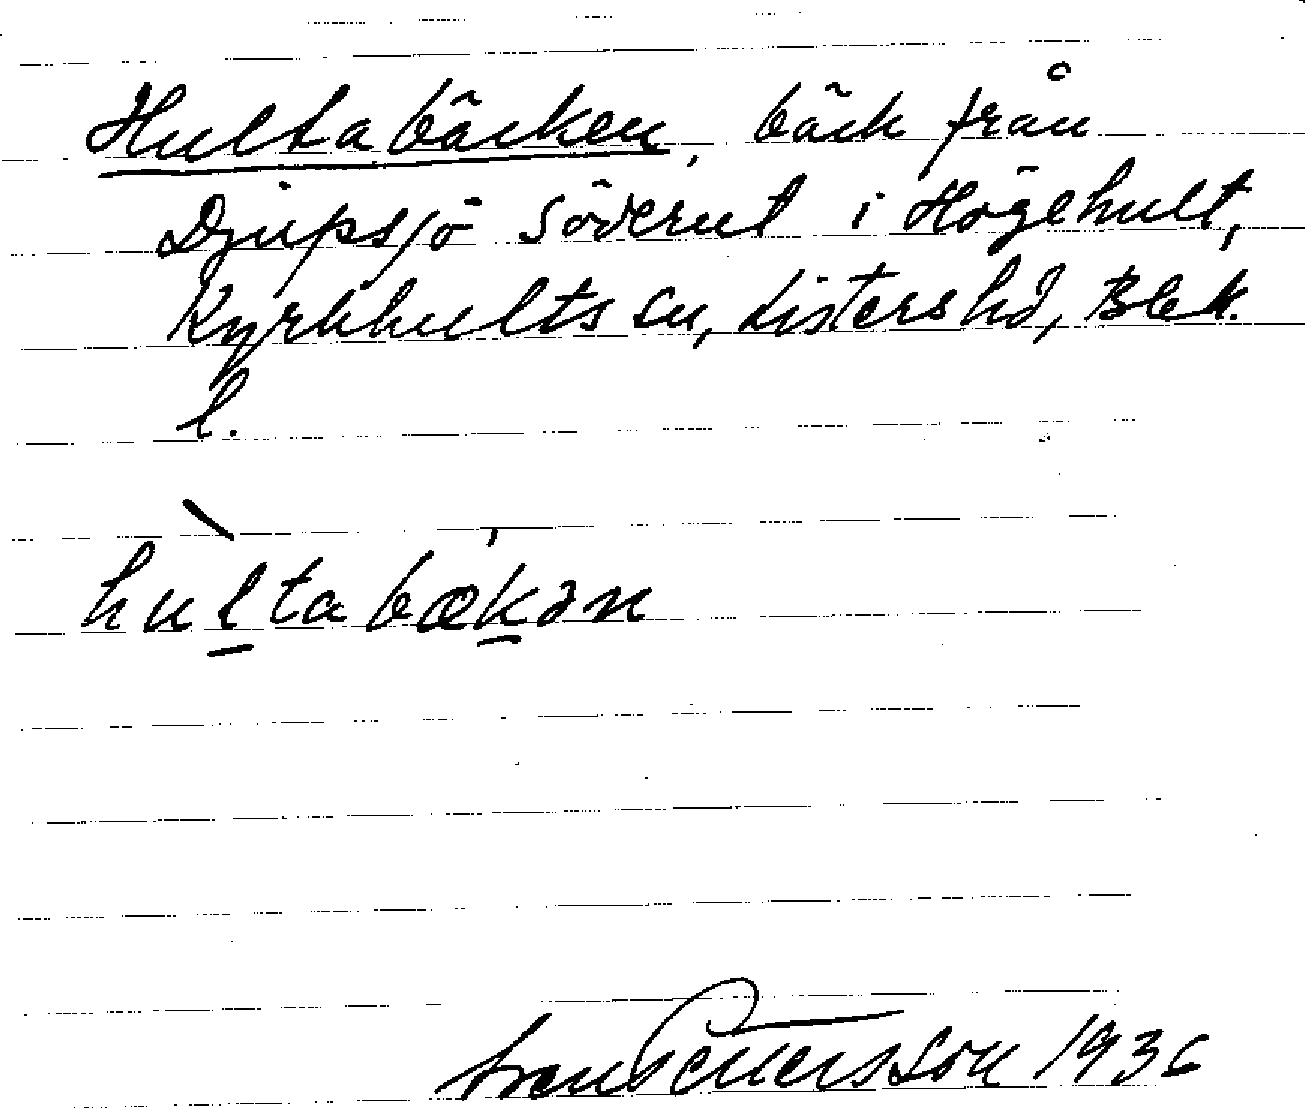 Hultabäcken, bäck från
Djupsjö söderut i Högehult,
Kyrkhults sn, Listers hd, Blek.
l.
hùltabækən
Sven Pettersson 1936